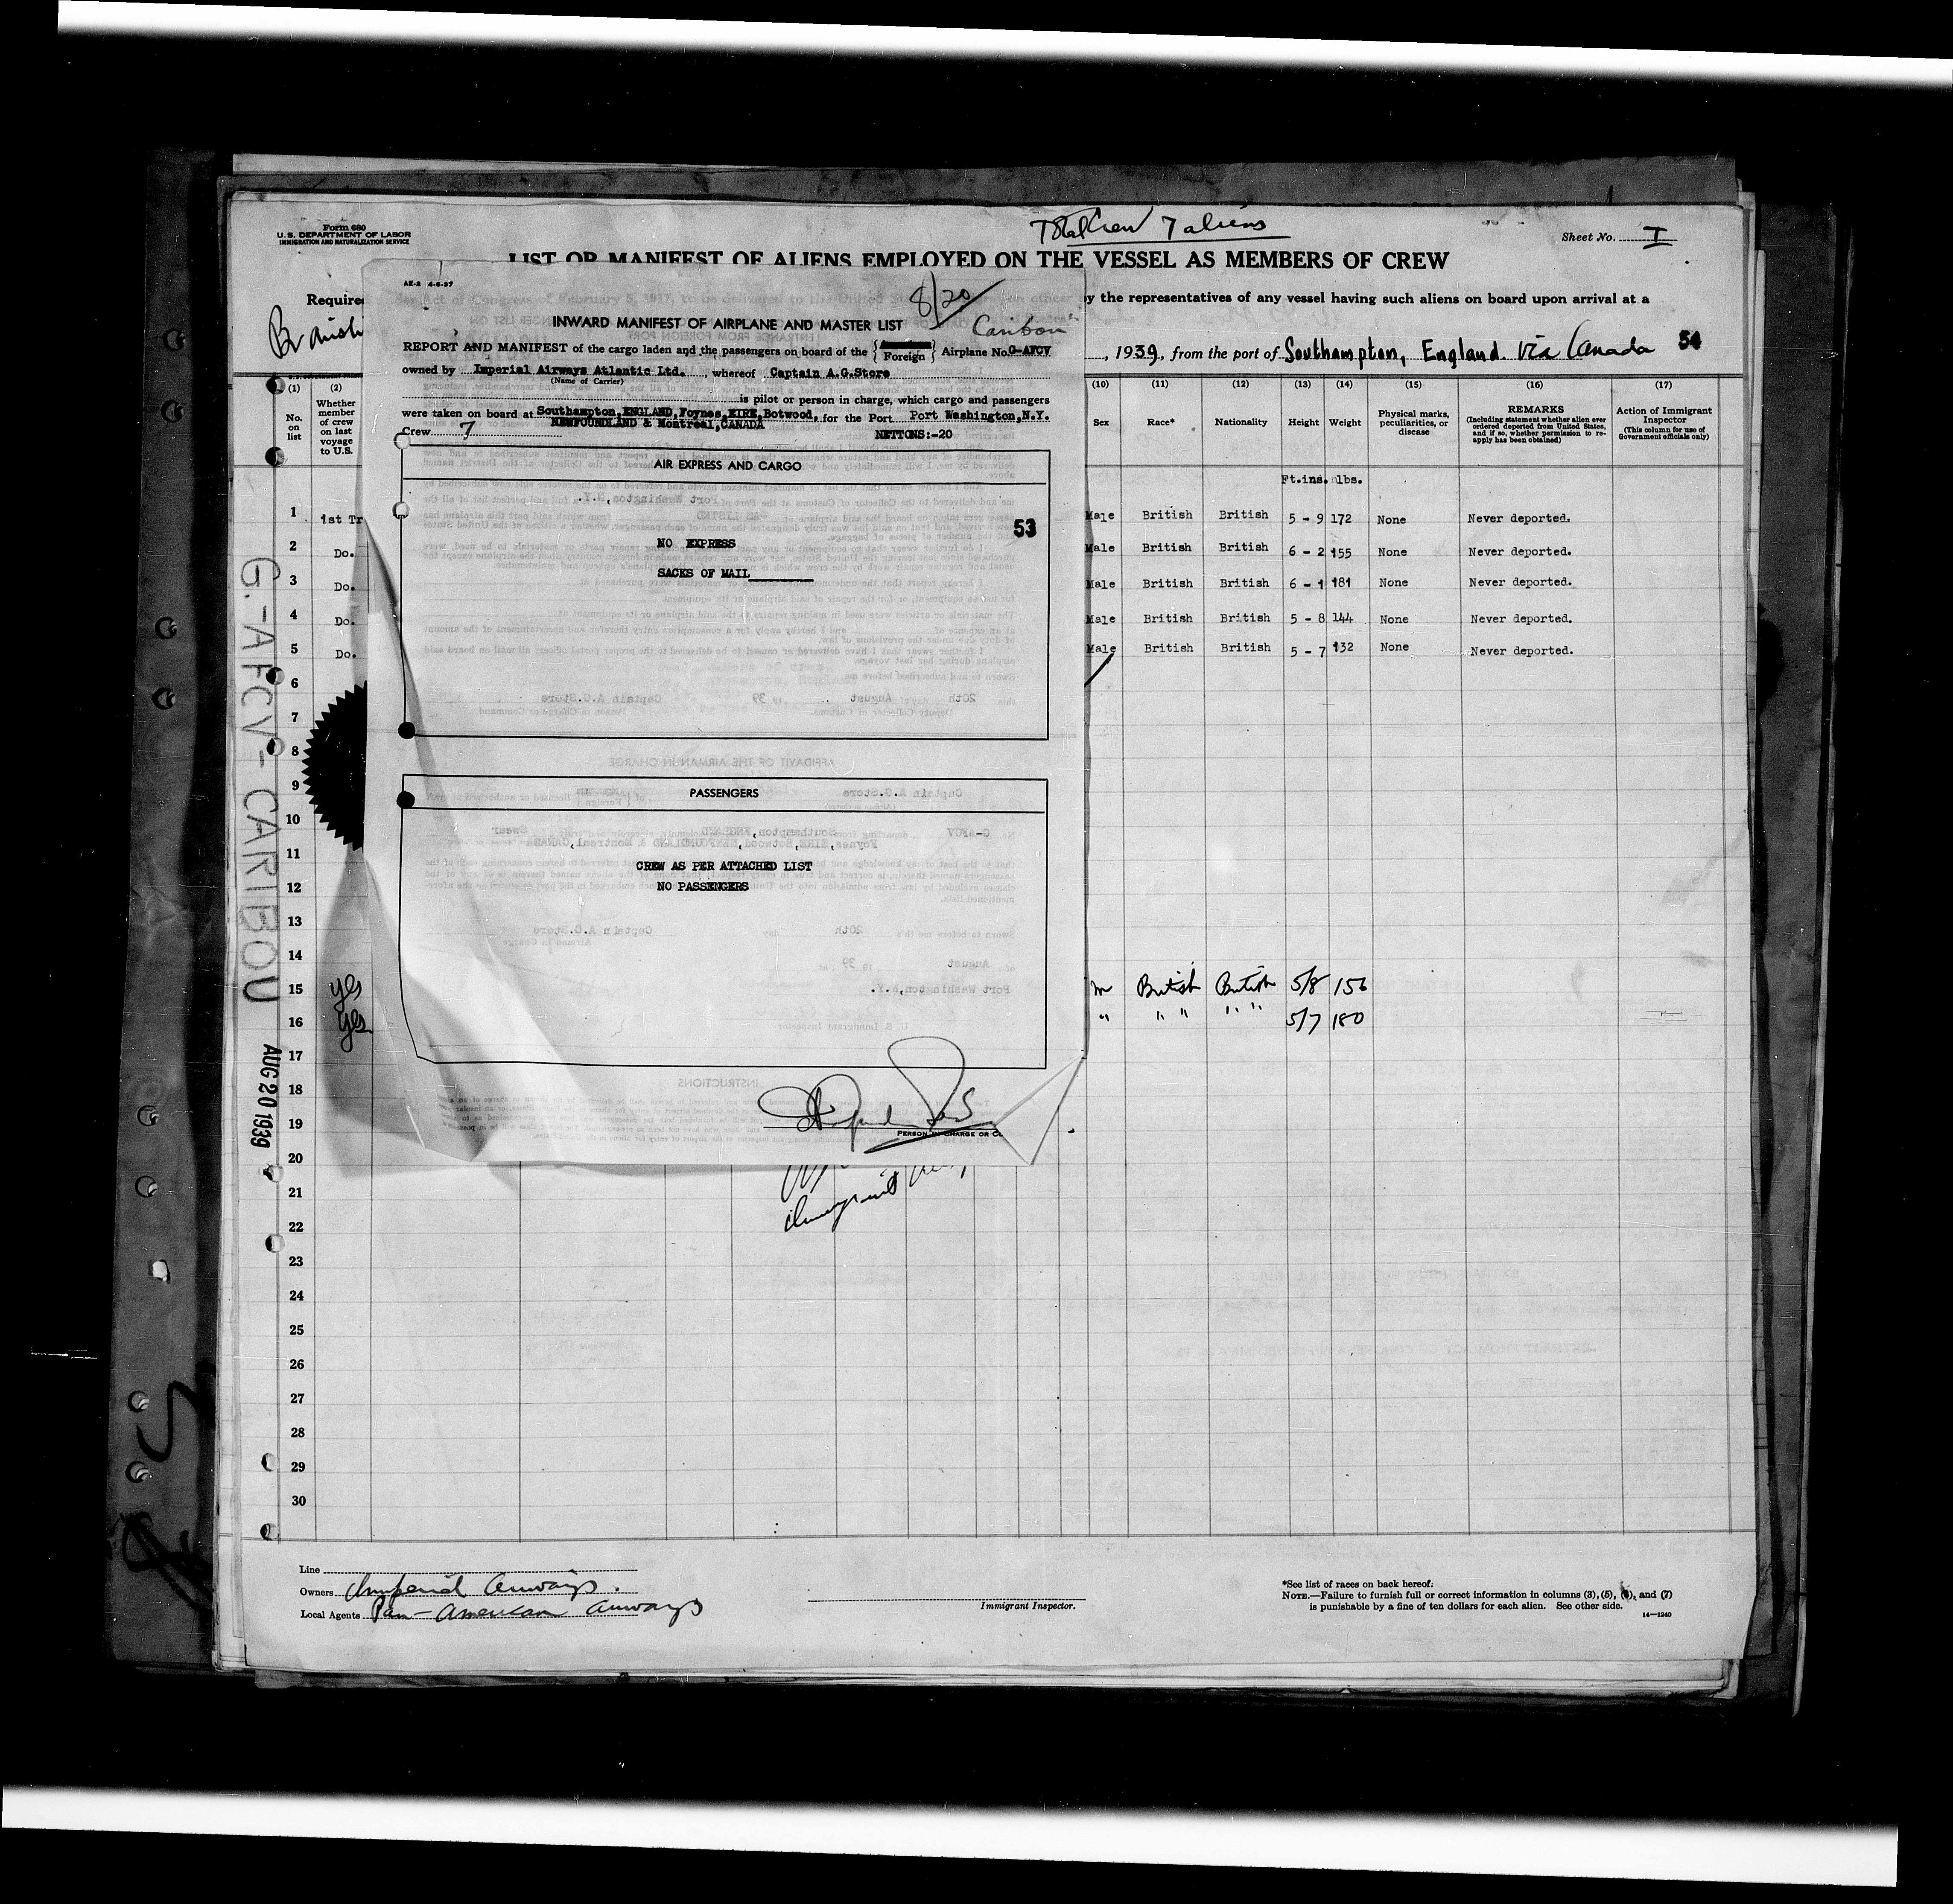 Form 680
U. S. DEPARTMENT OF LABOR
IMMIGRATION AND NATURALIZATION SERVICE
Total Crew 7 aliens
Sheet No. I
LIST OR MANIFEST OF ALIENS EMPLOYED ON THE VESSEL AS MEMBERS OF CREW
Required
by the representatives of any vessel having such aliens on board upon arrival at a
British
, 1939, from the port of Southampton, England via Canada 54
AE-2 4-6-37
8/20
INWARD MANIFEST OF AIRPLANE AND MASTER LIST
Caribou
REPORT AND MANIFEST of the cargo laden and the passengers on board of the Foreign Airplane No. G-AFCV
owned by Imperial Airways Atlantic Ltd. , whereof Captain A.G.Store
(Name of Carrier)
is pilot or person in charge, which cargo and passengers
were taken on board at Southampton,ENGLAND,Foynes,EIRE,Botwood, for the Port Port Washington,N.Y.
NEWFOUNDLAND & Montreal,CANADA
Crew 7
NETTONS:-20
AIR EXPRESS AND CARGO
53
NO EXPRESS
SACKS OF MAIL
PASSENGERS
CREW AS PER ATTACHED LIST
NO PASSENGERS
PERSON IN CHARGE OR
(1) (2) (10) (11) (12) (13) (14) (15) (16) (17)
No. on list
Whether member of crew on last voyage to U.S.
Sex
Race*
Nationality
Height
Weight
Physical marks, peculiarities, or disease
REMARKS
(Including statement whether alien ever ordered deported from United States, and if so, whether permission to re-apply has been obtained)
Action of Immigrant Inspector
(This column for use of Government officials only)
Ft.ins. lbs.
1 1st Tr Male British British 5 - 9 172 None Never deported.
2 Do. Male British British 6 - 2 155 None Never deported.
3 Do. Male British British 6 - 1 181 None Never deported.
4 Do. Male British British 5 - 8 144 None Never deported.
5 Do. Male British British 5 - 7 132 None Never deported.
6
7
8
9
10
11
12
13
14
15 yes m British British 5/8 156
16 yes " " " " " 5/7 180
17
18
19
20
21
22
23
24
25
26
27
28
29
30
G.-AFCV - CARIBOU
AUG 20 1939
Line
Owners Imperial Airways.
Local Agents Pan-American Airways
Immigrant Inspector.
*See list of races on back hereof.
NOTE.—Failure to furnish full or correct information in columns (3), (5), (6), and (7)
is punishable by a fine of ten dollars for each alien. See other side.
14—1240